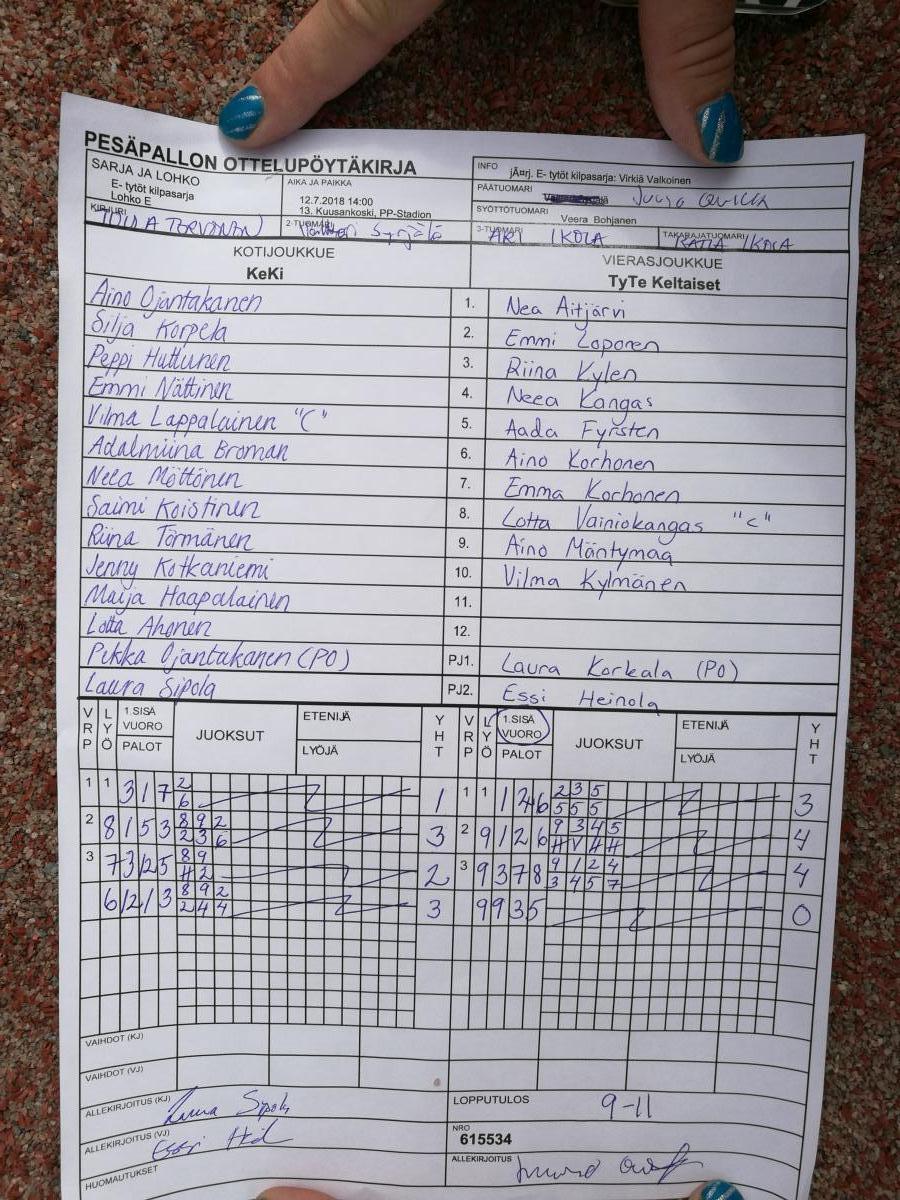 PESÄPALLON OTTELUPÖYTÄKIRJA
SARJA JA LOHKO
E- tytöt kilpasarja
Lohko E
AIKA JA PAIKKA
12.7.2018 14:00
13. Kuusankoski, PP-Stadion
INFO
jÃ¤rj. E- tytöt kilpasarja: Virkiä Valkoinen
PÄÄTUOMARI
SYÖTTÖTUOMARI
Veera Bohjanen
KIRJURI
2-TUOMARI
3-TUOMARI ARI IKOLA
TAKARAJATUOMARI KATJA IKOLA
KOTIJOUKKUE
KeKi
VIERASJOUKKUE
TyTe Keltaiset
Aino Ojantakanen 1. Nea Aitjärvi
Silja Korpela 2. Emmi Loponen
Peppi Huttunen 3. Riina Kylen
Emmi Nättinen 4. Neea Kangas
Vilma Lappalainen "C" 5. Aada Fyrsten
Adalmiina Broman 6. Aino Korhonen
Neea Möttönen 7. Emma Korhonen
Saimi Koistinen 8. Lotta Vainiokangas "C"
Riina Törmänen 9. Aino Mäntymaa
Jenny Kotkaniemi 10. Vilma Kylmänen
Maija Haapalainen 11.
Lotta Ahonen 12.
Pekka Ojantakanen (PO) PJ1. Laura Korkeala (PO)
Laura Sipola PJ2. Essi Heinola
VRP LYÖ 1.SISÄ VUORO PALOT JUOKSUT ETENIJÄ LYÖJÄ YHT VRP LYÖ 1.SISÄ VUORO PALOT JUOKSUT ETENIJÄ LYÖJÄ YHT
1 1 3 1 7 2 1 1 1 1 4 6 2 3 5 3
6 5 5 5
2 8 1 5 3 8 9 2 3 2 9 1 2 6 9 3 4 5 4
2 3 6 H V H H
3 7 3 2 5 8 9 2 3 9 3 7 8 9 1 2 4 4
H 2 3 4 5 7
6 2 1 3 8 9 2 3 9 9 3 5 0
2 4 4
VAIHDOT (KJ)
VAIHDOT (VJ)
ALLEKIRJOITUS (KJ) Laura Sipola
LOPPUTULOS 9-11
ALLEKIRJOITUS (VJ)
NRO
615534
HUOMAUTUKSET
ALLEKIRJOITUS